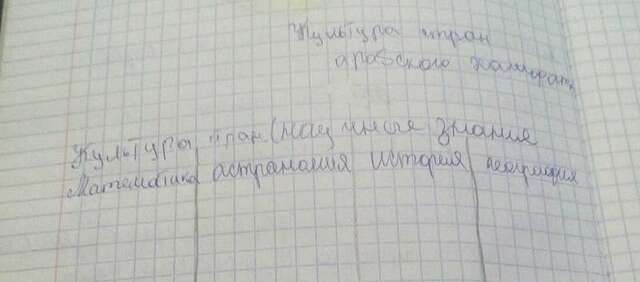 Культура стран
арабского халифата
Культура стран (научные знания
Математика астраномия история география